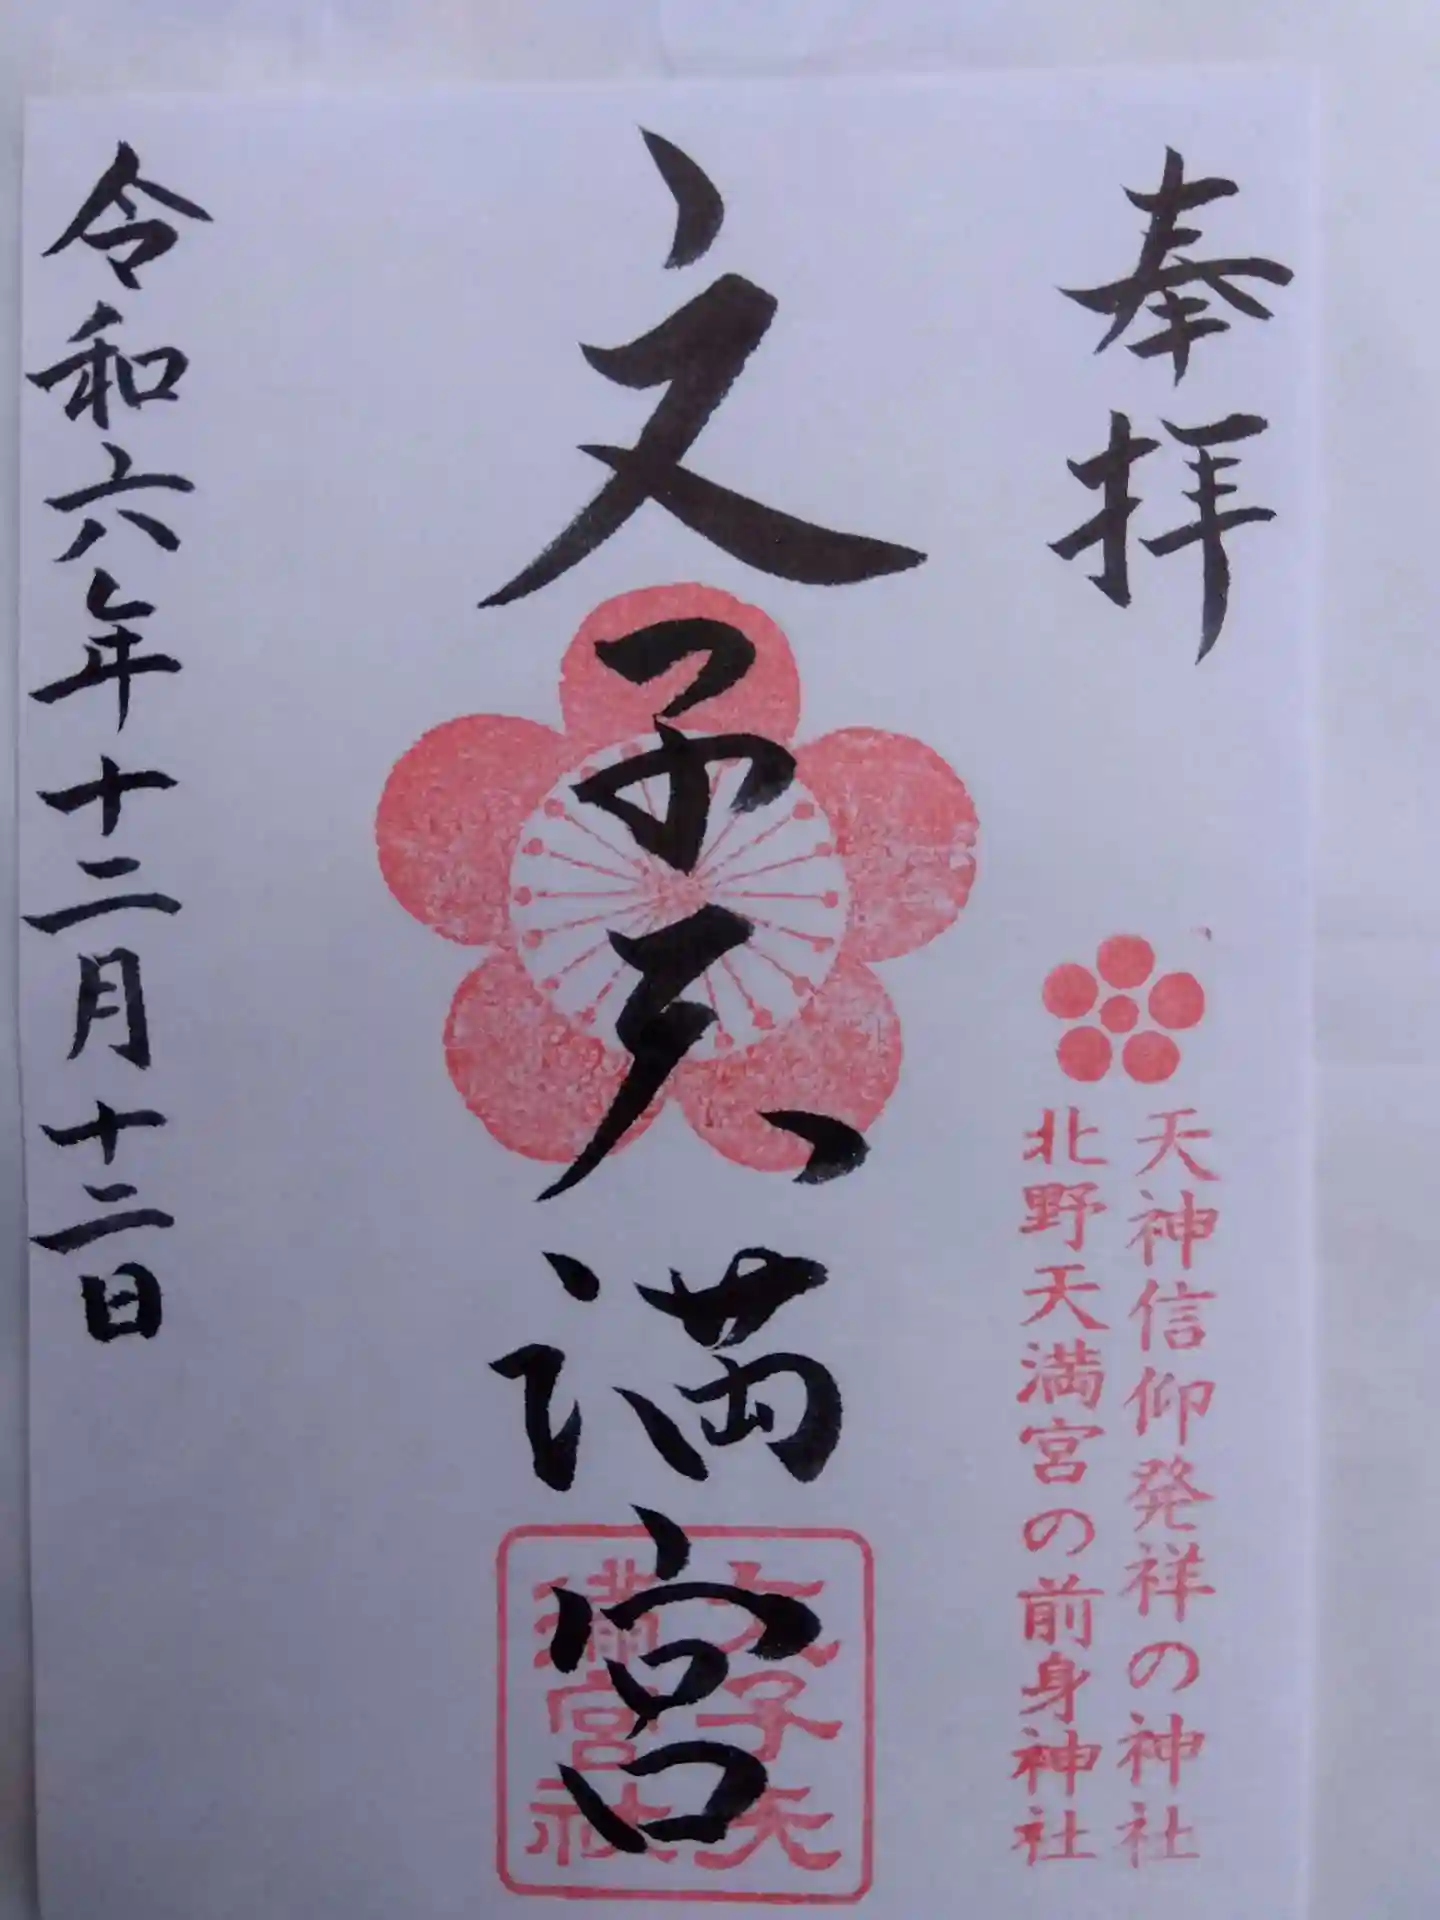 奉拝
天神信仰発祥の神社
北野天満宮の前身神社
文子天満宮
文子天
満宮社
令和六年十二月十二日